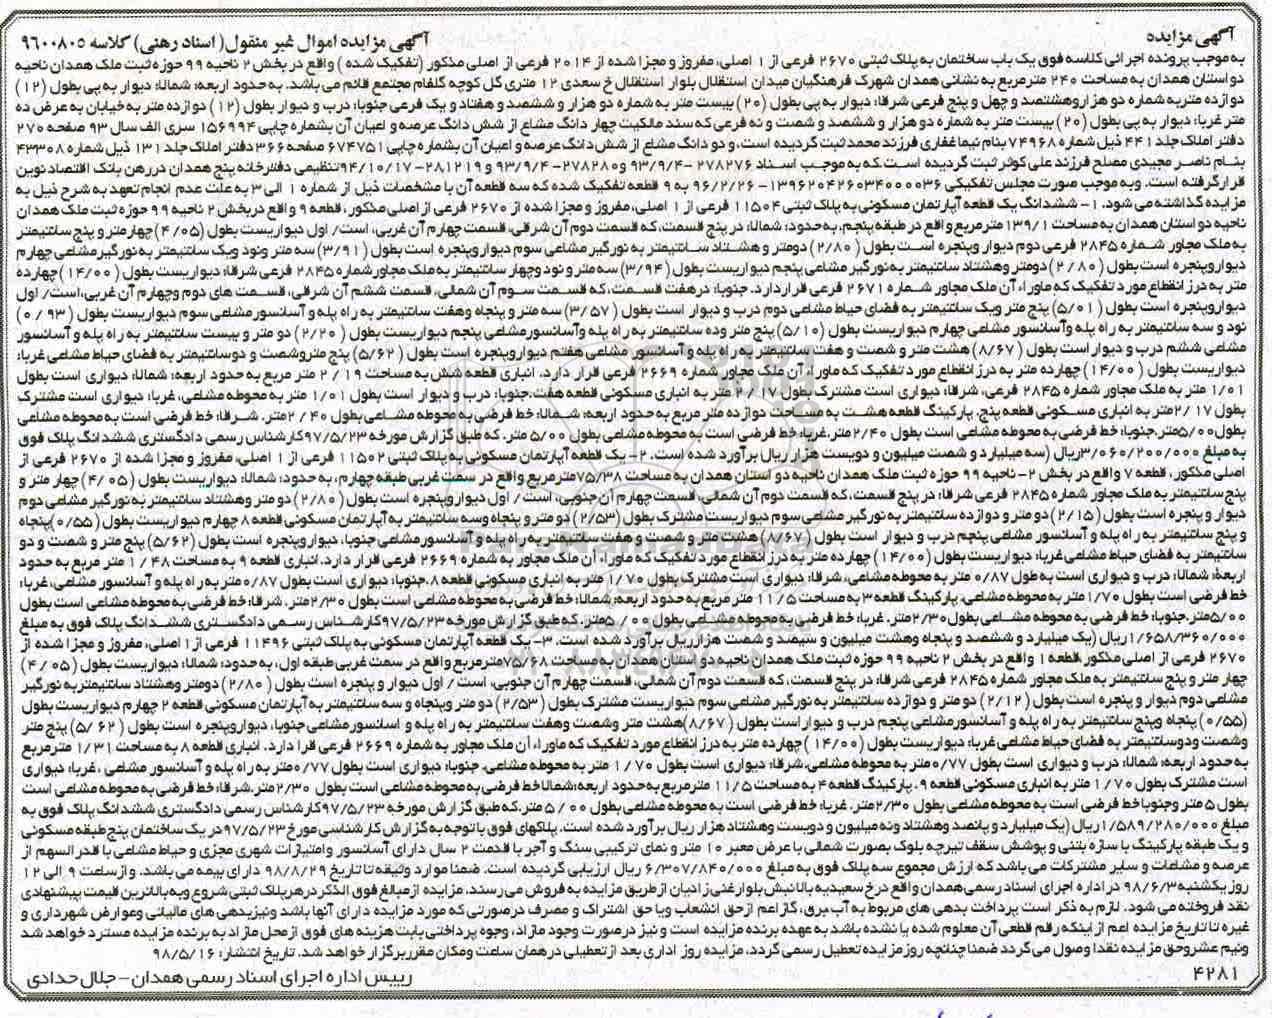 آگهی مزایده
آگهی مزایده اموال غیر منقول( اسناد رهنی) کلاسه ۹۶۰۰۸۰۵
به موجب پرونده اجرائی کلاسه فوق یک باب ساختمان به پلاک ثبتی ۲۶۷۰ فرعی از ۱ اصلی، مفروز و مجزا شده از ۲۰۱۴ فرعی از اصلی مذکور (تفکیک شده ) واقع در بخش ۲ ناحیه ۹۹ حوزه ثبت ملک همدان ناحیه
دو استان همدان به مساحت ۲۴۰ مترمربع به نشانی همدان شهرک فرهنگیان میدان استقلال بلوار استقلال خ سعدی ۱۲ متری گل کوچه گلفام مجتمع قائم می باشد. به حدود اربعه: شمالا: دیوار به پی بطول (۱۲)
دوازده متر به شماره دو هزار وهشتصد و چهل و پنج فرعی شرقا: دیوار به پی بطول (۲۰) بیست متر به شماره دو هزار و ششصد و هفتاد و یک فرعی جنوبا: درب و دیوار بطول (۱۲) دوازده متر به خیابان به عرض ده
متر غربا: دیوار به پی بطول (۲۰) بیست متر به شماره دو هزار و ششصد و شصت و نه فرعی که سند مالکیت چهار دانگ مشاع از شش دانگ عرصه و اعیان آن بشماره چاپی ۱۵۶۹۹۴ سری الف سال ۹۳ صفحه ۲۷۰
دفتر املاک جلد ۴۴۱ ذیل شماره ۷۴۹۶۸ بنام نیما غفاری فرزند محمد ثبت گردیده است، و دو دانگ مشاع از شش دانگ عرصه و اعیان آن بشماره چاپی ۶۷۴۷۵۱ صفحه ۳۶۶ دفتر املاک جلد ۱۳۱ ذیل شماره ۴۳۳۰۸
بنام ناصر مجیدی مصلح فرزند علی کوثر ثبت گردیده است.که به موجب اسناد ۲۷۸۲۷۶ -۹۳/۹/۴ و۲۷۸۲۸۰-۹۳/۹/۴ و ۲۸۱۲۱۹-۹۴/۱۰/۱۷تنظیمی دفترخانه پنج همدان در رهن بانک اقتصاد نوین
قرار گرفته است. وبه موجب صورت مجلس تفکیکی ۱۳۹۶۲۰۴۲۶۰۳۴۰۰۰۰۳۶ -۹۶/۲/۲۶ به ۹ قطعه تفکیک شده که سه قطعه آن با مشخصات ذیل از شماره ۱ الی ۳ به علت عدم انجام تعهد به شرح ذیل به
مزایده گذاشته می شود. ۱- ششدانگ یک قطعه آپارتمان مسکونی به پلاک ثبتی ۱۱۵۰۴ فرعی از ۱ اصلی، مفروز و مجزا شده از ۲۶۷۰ فرعی از اصلی مذکور، قطعه ۹ واقع دربخش ۲ ناحیه ۹۹ حوزه ثبت ملک همدان
ناحیه دو استان همدان به مساحت ۱۳۹/۱ مترمربع واقع در طبقه پنجم. به حدود: شمالا: در پنج قسمت، که قسمت دوم آن شرقی، قسمت چهارم آن غربی، است/ اول دیواریست بطول (۴/۰۵) چهارمتر و پنج سانتیمتر
به ملک مجاور شماره ۲۸۴۵ فرعی دوم دیوار وپنجره است بطول ( ۲/۸۰) دومتر و هشتاد سانتیمتر به نورگیر مشاعی سوم دیواروپنجره است بطول (۳/۹۱) سه متر ونود ویک سانتیمتر به نورگیرمشاعی چهارم
دیواروپنجره است بطول ( ۲/۸۰) دومتر وهشتاد سانتیمتر به نورگیر مشاعی پنجم دیواریست بطول (۳/۹۴) سه متر و نود وچهار سانتیمتر به ملک مجاور شماره ۲۸۴۵ فرعی شرقا: دیواریست بطول (۱۴/۰۰) چهارده
متر به درز انقطاع مورد تفکیک که ماوراء آن ملک مجاور شماره ۲۶۷۱ فرعی قراردارد. جنوبا: درهفت قسمت، که قسمت سوم آن شمالی، قسمت ششم آن شرقی، قسمت های دوم وچهارم آن غربی،است/ اول
دیواروپنجره است بطول ( ۵/۰۱) پنج متر ویک سانتیمتر به فضای حیاط مشاعی دوم درب و دیوار است بطول (۳/۵۷) سه متر و پنجاه وهفت سانتیمتر به راه پله و آسانسور مشاعی سوم دیواریست بطول ( ۰/۹۳)
نود و سه سانتیمتر به راه پله وآسانسور مشاعی چهارم دیواریست بطول (۵/۱۰) پنج متر وده سانتیمتر به راه پله وآسانسورمشاعی پنجم دیواریست بطول ( ۲/۲۰) دو متر و بیست سانتیمتر به راه پله و آسانسور
مشاعی ششم درب و دیوار است بطول ( ۸/۶۷) هشت متر و شصت و هفت سانتیمتر به راه پله و آسانسور مشاعی هفتم دیواروپنجره است بطول (۵/۶۲) پنج متروشصت و دوسانتیمتر به فضای حیاط مشاعی غربا:
دیواریست بطول (۱۴/۰۰) چهارده متر به درز انقطاع مورد تفکیک که ماوراء آن ملک مجاور شماره ۲۶۶۹ فرعی قرار دارد. انباری قطعه شش به مساحت ۲/۱۹ متر مربع به حدود اربعه: شمالا: دیواری است بطول
۱/۰۱ متر به ملک مجاور شماره ۲۸۴۵ فرعی، شرقا: دیواری است مشترک بطول ۲/۱۷ متر به انباری مسکونی قطعه هفت.جنوبا: درب و دیوار است بطول ۱/۰۱ متر به محوطه مشاعی، غربا: دیواری است مشترک
بطول ۲/۱۷ متر به انباری مسکونی قطعه پنج. پارکینگ قطعه هشت به مساحت دوازده متر مربع به حدود اربعه: شمالا: خط فرضی به محوطه مشاعی بطول ۲/۴۰ متر. شرقا: خط فرضی است به محوطه مشاعی
بطول ۵/۰۰متر.جنوبا: خط فرضی به محوطه مشاعی است بطول ۲/۴۰ متر.غربا: خط فرضی است به محوطه مشاعی بطول ۵/۰۰ متر. که طبق گزارش مورخه ۹۷/۵/۲۳کارشناس رسمی دادگستری ششدانگ پلاک فوق
به مبلغ ۳/۰۶۰/۲۰۰/۰۰۰ریال (سه میلیارد و شصت میلیون و دویست هزار ریال برآورد شده است. ۲- یک قطعه آپارتمان مسکونی به پلاک ثبتی ۱۱۵۰۲ فرعی از ۱ اصلی، مفروز و مجزا شده از ۲۶۷۰ فرعی از
اصلی مذکور، قطعه ۷ واقع در بخش ۲- ناحیه ۹۹ حوزه ثبت ملک همدان ناحیه دو استان همدان به مساحت ۷۵/۳۸مترمربع واقع در سمت غربی طبقه چهارم، به حدود: شمالا: دیواریست بطول (۴/۰۵) چهار متر و
پنج سانتیمتر به ملک مجاور شماره ۲۸۴۵ فرعی شرقا: در پنج قسمت، که قسمت دوم آن شمالی، قسمت چهارم آن جنوبی، است/ اول دیواروپنجره است بطول (۲/۸۰) دو متر وهشتاد سانتیمتر به نورگیر مشاعی دوم
دیوار و پنجره است بطول (۲/۱۵) دو متر و دوازده سانتیمتر به نورگیر مشاعی سوم دیواریست مشترک بطول (۲/۵۳) دو متر و پنجاه وسه سانتیمتر به آپارتمان مسکونی قطعه ۸ چهارم دیواریست بطول (۰/۵۵)پنجاه
و پنج سانتیمتر به راه پله و آسانسور مشاعی پنجم درب و دیوار است بطول (۸/۶۷) هشت متر و شصت و هفت سانتیمتر به راه پله و آسانسورمشاعی جنوبا، دیواروپنجره است بطول (۵/۶۲) پنج متر و شصت و دو
سانتیمتر به فضای حیاط مشاعی غربا: دیواریست بطول (۱۴/۰۰) چهارده متر به درز انقطاع مورد تفکیک که ماوراء آن ملک مجاور به شماره ۲۶۶۹ فرعی قرار دارد. انباری قطعه ۹ به مساحت ۱/۴۸ متر مربع به حدود
اربعه: شمالا: درب و دیواری است به طول ۰/۸۷ متر به محوطه مشاعی، شرقا: دیواری است مشترک بطول ۱/۷۰ متر به انباری مسکونی قطعه ۸.جنوبا: دیواری است بطول ۰/۸۷متر به راه پله و آسانسور مشاعی، غربا:
خط فرضی است بطول ۱/۷۰متر به محوطه مشاعی. پارکینگ قطعه ۳ به مساحت ۱۱/۵ متر مربع به حدود اربعه: شمالا: خط فرضی به محوطه مشاعی است بطول ۲/۳۰متر. شرقا: خط فرضی به محوطه مشاعی است بطول
۵/۰۰متر.جنوبا: خط فرضی است به محوطه مشاعی بطول ۲/۳۰متر. غربا: خط فرضی است به محوطه مشاعی بطول ۵/۰۰متر. که طبق گزارش مورخه ۹۷/۵/۲۳کارشناس رسمی دادگستری ششدانگ پلاک فوق به مبلغ
۱/۶۵۸/۳۶۰/۰۰۰ریال (یک میلیارد و ششصد و پنجاه وهشت میلیون و سیصد و شصت هزار ریال برآورد شده است. ۳- یک قطعه آپارتمان مسکونی به پلاک ثبتی ۱۱۴۹۶ فرعی از ۱ اصلی، مفروز و مجزا شده از
۲۶۷۰ فرعی از اصلی مذکور ،قطعه ۱ واقع در بخش ۲ ناحیه ۹۹ حوزه ثبت ملک همدان ناحیه دو استان همدان به مساحت ۷۵/۶۸مترمربع واقع در سمت غربی طبقه اول، به حدود: شمالا: دیواریست بطول (۴/۰۵)
چهار متر و پنج سانتیمتر به ملک مجاور شماره ۲۸۴۵ فرعی شرقا: در پنج قسمت، که قسمت دوم آن شمالی، قسمت چهارم آن جنوبی، است / اول دیوار و پنجره است بطول ( ۲/۸۰) دومتر وهشتاد سانتیمتر به نورگیر
مشاعی دوم دیوار و پنجره است بطول (۲/۱۲) دو متر و دوازده سانتیمتر به نورگیر مشاعی سوم دیواریست مشترک بطول (۲/۵۳) دو متر وپنجاه و سه سانتیمتر به آپارتمان مسکونی قطعه ۲ چهارم دیواریست بطول
(۰/۵۵) پنجاه وپنج سانتیمتر به راه پله و آسانسورمشاعی پنجم درب و دیوار است بطول (۸/۶۷)هشت متر وشصت وهفت سانتیمتر به راه پله و اسانسور مشاعی جنوبا، دیواروپنجره است بطول ( ۵/۶۲) پنج متر
وشصت ودوسانتیمتر به فضای حیاط مشاعی غربا: دیواریست بطول (۱۴/۰۰ )چهارده متر به درز انقطاع مورد تفکیک که ماوراء آن ملک مجاور به شماره ۲۶۶۹ فرعی قرا دارد. انباری قطعه ۸ به مساحت ۱/۳۱ مترمربع
به حدود اربعه: شمالا: درب و دیواری است بطول ۰/۷۷متر به محوطه مشاعی.شرقا: دیواری است بطول ۱/۷۰ متر به محوطه مشاعی. جنوبا: دیواری است بطول ۰/۷۷متر به راه پله و آسانسور مشاعی ، غربا: دیواری
است مشترک بطول ۱/۷۰ متر به انباری مسکونی قطعه ۹. پارکینگ قطعه ۴ به مساحت ۱۱/۵ مترمربع به حدود اربعه:شمالا خط فرضی به محوطه مشاعی است بطول ۲/۳۰متر.شرقا: خط فرضی به محوطه مشاعی است
بطول ۵ متر وجنوبا خط فرضی است به محوطه مشاعی بطول ۲/۳۰متر. غربا: خط فرضی است به محوطه مشاعی بطول ۵/۰۰ متر.که طبق گزارش مورخه ۹۷/۵/۲۳کارشناس رسمی دادگستری ششدانگ پلاک فوق به
مبلغ ۱/۵۸۹/۲۸۰/۰۰۰ریال (یک میلیارد و پانصد وهشتاد ونه میلیون و دویست وهشتاد هزار ریال برآورد شده است. پلاکهای فوق با توجه به گزارش کارشناسی مورخ ۹۷/۵/۲۳ در یک ساختمان پنج طبقه مسکونی
و یک طبقه پارکینگ با سازه بتنی و پوشش سقف تیرچه بلوک بصورت شمالی با عرض معبر ۱۰ متر و نمای ترکیبی سنگ و آجر با قدمت ۲ سال دارای آسانسور وامتیازات شهری مجزی و حیاط مشاعی با قدر السهم از
عرصه و مشاعات و سایر مشترکات می باشد که ارزش مجموع سه پلاک فوق به مبلغ ۶/۳۰۷/۸۴۰/۰۰۰ ریال ارزیابی گردیده است. ضمنا موارد وثیقه تا تاریخ ۹۸/۸/۲۹ دارای بیمه می باشد. و از ساعت ۹ الی ۱۲
روز یکشنبه ۹۸/۶/۳ در اداره اجرای اسناد رسمی همدان واقع در خ سعیدیه بالا نبش بلوار غنی زادیان از طریق مزایده به فروش می رسند، مزایده از مبالغ فوق الذکر در هر پلاک ثبتی شروع وبه بالاترین قیمت پیشنهادی
نقد فروخته می شود. لازم به ذکر است پرداخت بدهی های مربوط به آب،برق، گاز اعم از حق انشعاب ویا حق اشتراک و مصرف درصورتی که مورد مزایده دارای آنها باشد ونیزبدهی های مالیاتی وعوارض شهرداری و
غیره تا تاریخ مزایده اعم از اینکه رقم قطعی آن معلوم شده یا نشده باشد به عهده برنده مزایده است و نیز درصورت وجود مازاد، وجوه پرداختی بابت هزینه های فوق ازمحل مازاد به برنده مزایده مسترد خواهد شد
ونیم عشروحق مزایده نقدا وصول می گردد ضمنا چنانچه روز مزایده تعطیل رسمی گردد، مزایده روز اداری بعد از تعطیلی در همان ساعت ومکان مقرربرگزار خواهد شد. تاریخ انتشار: ۹۸/۵/۱۶
۴۲۸۱
رییس اداره اجرای اسناد رسمی همدان- جلال حدادی